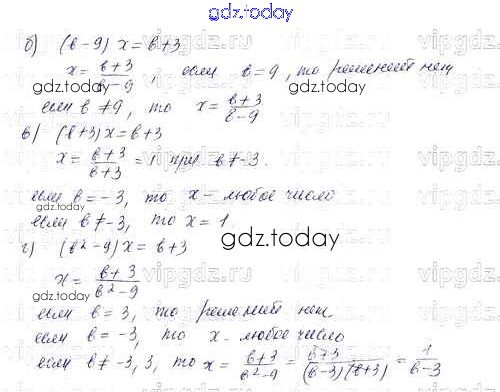 gdz.today
б) (в-9) x = в+3
x = в+3/в-9, если в=9, то решений нет
gdz.today
если в≠9, то x = в+3/в-9
в) (в+3) x = в+3
x = в+3/в+3 = 1 при в≠-3.
если в=-3, то x - любое число
если в≠-3, то x = 1
gdz.today
г) (в²-9) x = в+3
x = в+3/в²-9
gdz.today
если в=3, то решений нет.
если в=-3, то x - любое число
если в≠-3, 3, то x = в+3/в²-9 = в+3/(в-3)(в+3) = 1/в-3